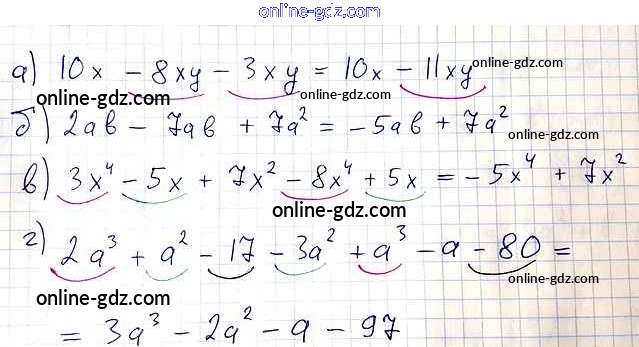 online-gdz.com
а) 10x - 8xy - 3xy = 10x - 11xy
online-gdz.com
online-gdz.com
б) 2ab - 7ab + 7a² = -5ab + 7a²
online-gdz.com
online-gdz.com
в) 3x⁴ - 5x + 7x² - 8x⁴ + 5x = -5x⁴ + 7x²
online-gdz.com
г) 2a³ + a² - 17 - 3a² + a³ - a - 80 =
online-gdz.com
online-gdz.com
= 3a³ - 2a² - a - 97